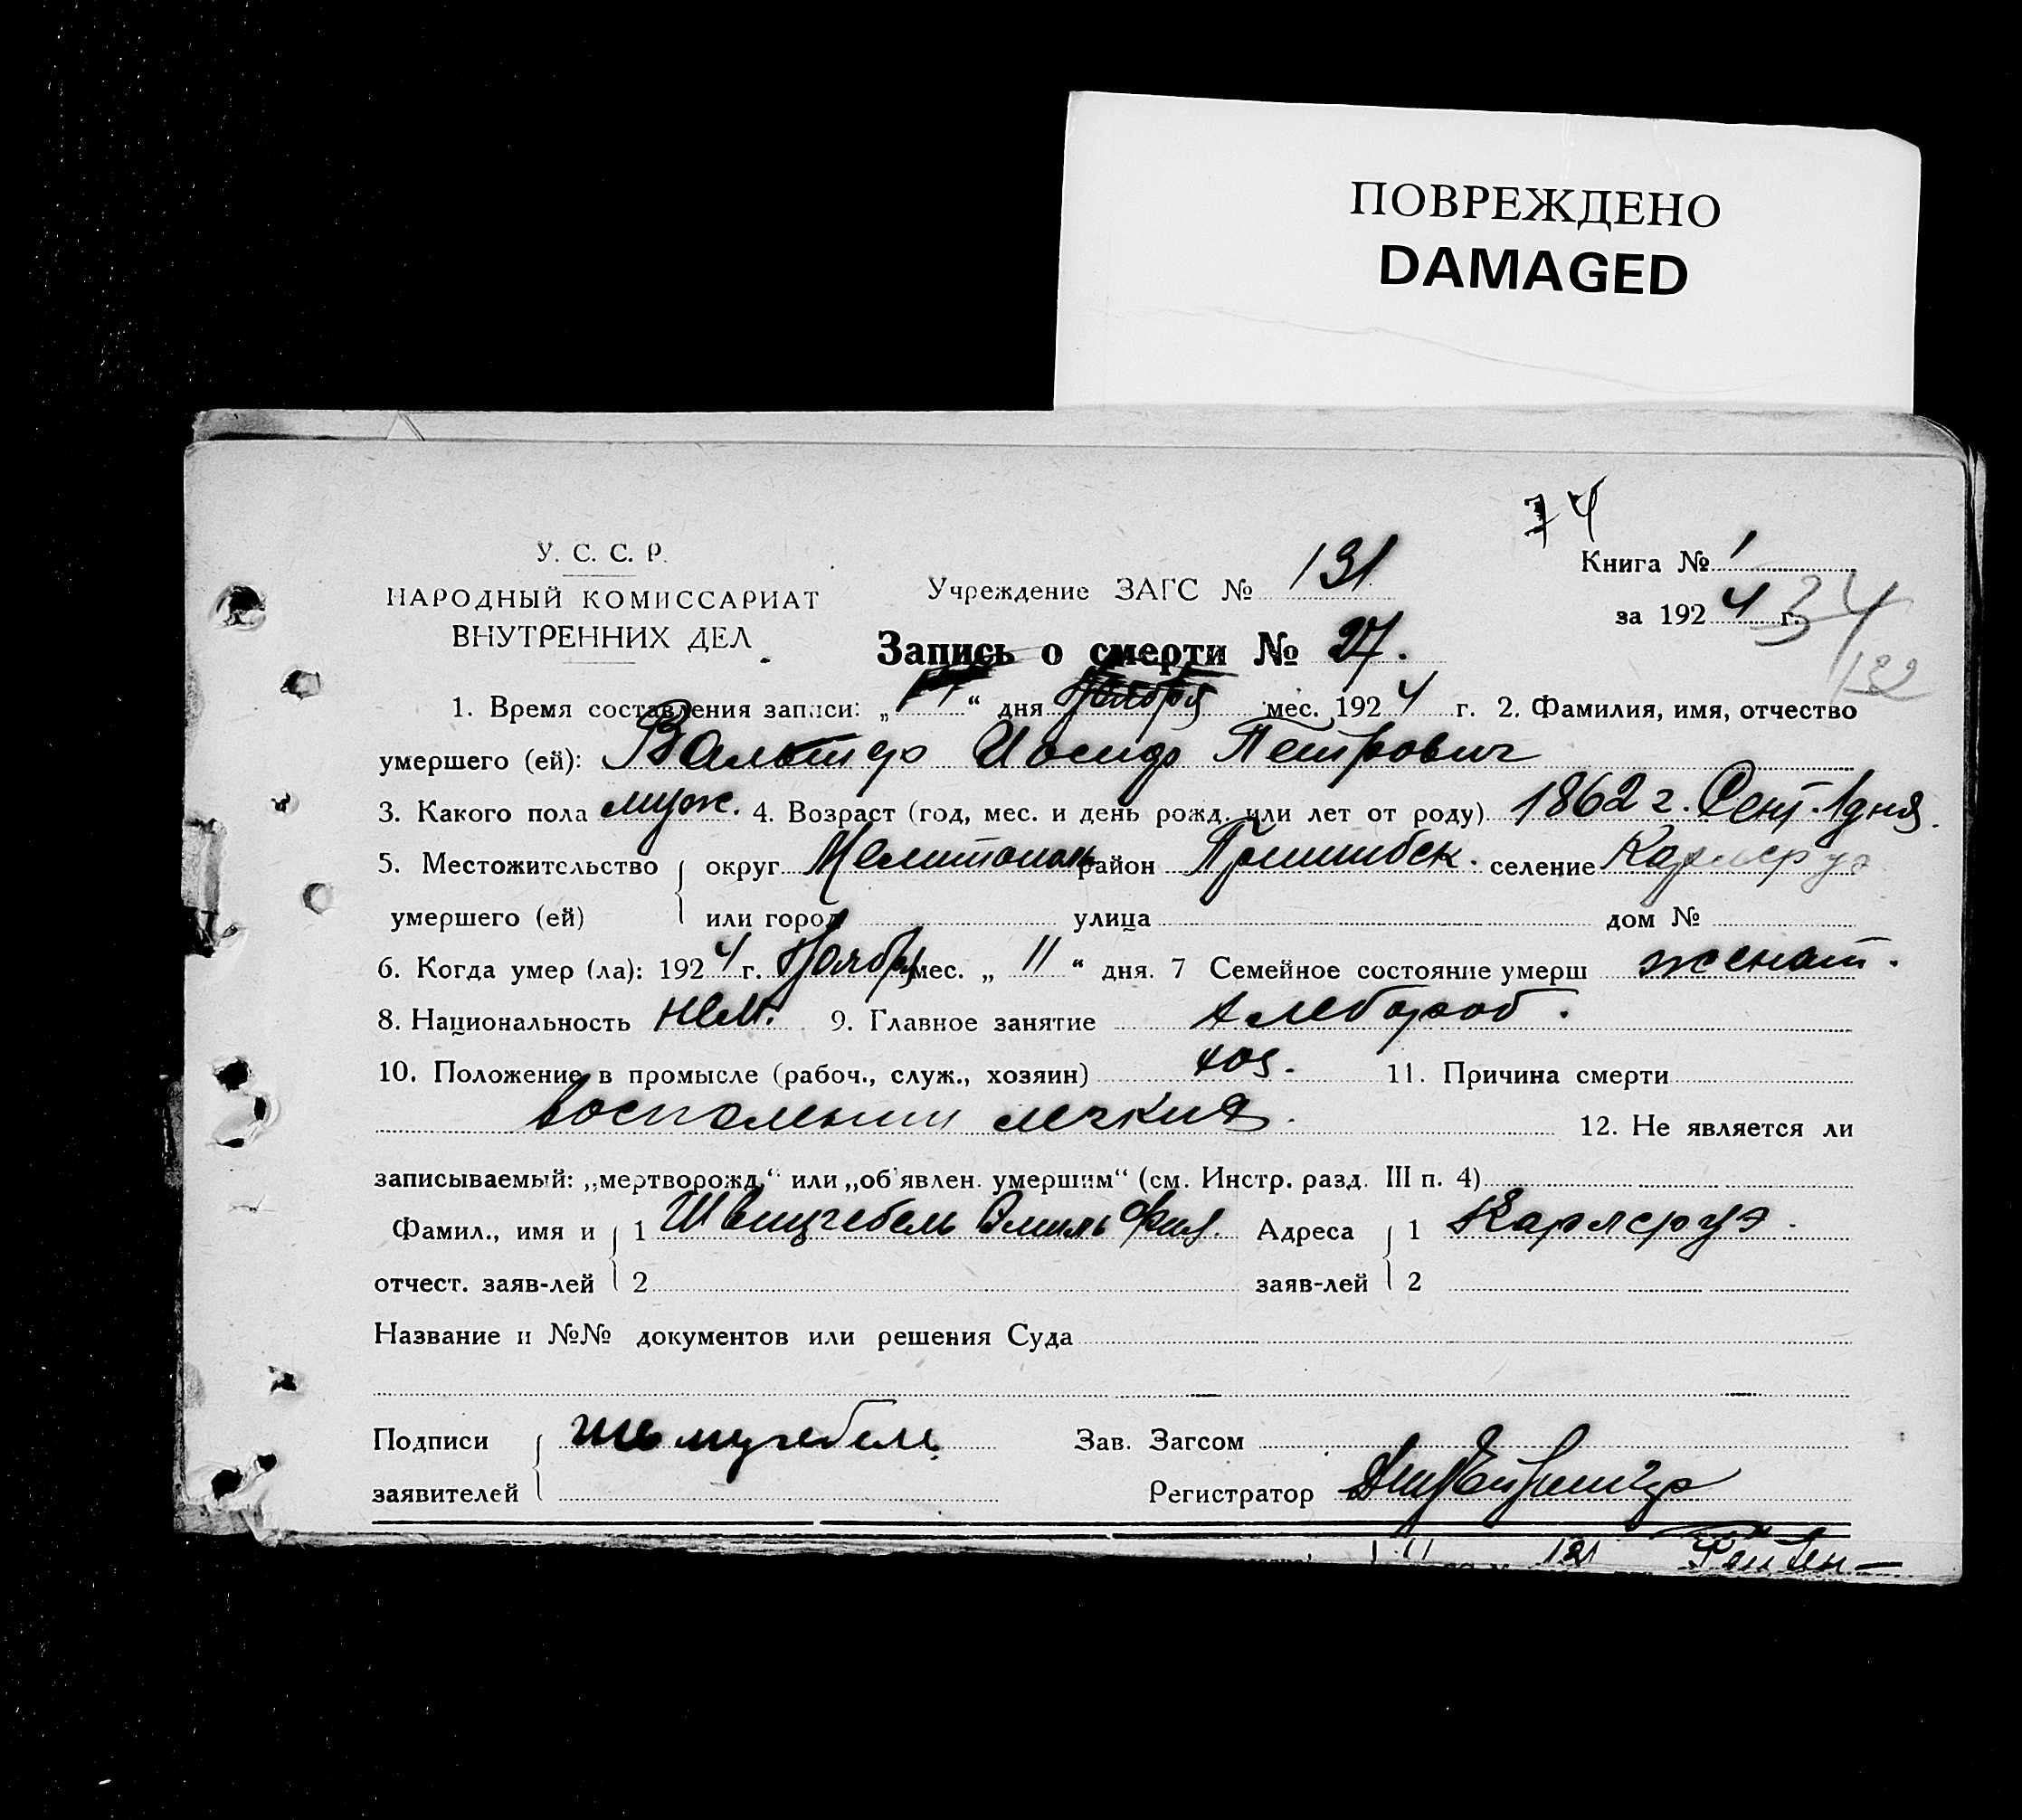 ПОВРЕЖДЕНО
DAMAGED
74
У. С. С. Р.
НАРОДНЫЙ КОМИССАРИАТ
ВНУТРЕННИХ ДЕЛ
Учреждение ЗАГС № 131
Книга № 1
за 1924 г.
34
132
Запись о смерти № 27.
1. Время составления записи: „ “ дня Ноября мес. 1924 г. 2. Фамилия, имя, отчество
умершего (ей): Вальтер Иосиф Петрович
3. Какого пола муж. 4. Возраст (год, мес. и день рожд. или лет от роду) 1862 г. Сент. 1 дня.
5. Местожительство округ Мелитополь район Пришибск. селение Карлсруэ
умершего (ей) или город улица дом №
6. Когда умер (ла): 1924 г. Ноября мес. „ 11 “ дня. 7 Семейное состояние умерш женат.
8. Национальность нем. 9. Главное занятие хлебороб.
10. Положение в промысле (рабоч., служ., хозяин) хоз. 11. Причина смерти
воспалении легких. 12. Не является ли
записываемый: „мертворожд.“ или „об'явлен. умершим“ (см. Инстр. разд. III п. 4)
Фамил., имя и 1 Швицгебель Эмиль Адреса 1 Карлсруэ.
отчест. заяв-лей 2 заяв-лей 2
Название и №№ документов или решения Суда
Подписи Зав. Загсом
заявителей Регистратор
121